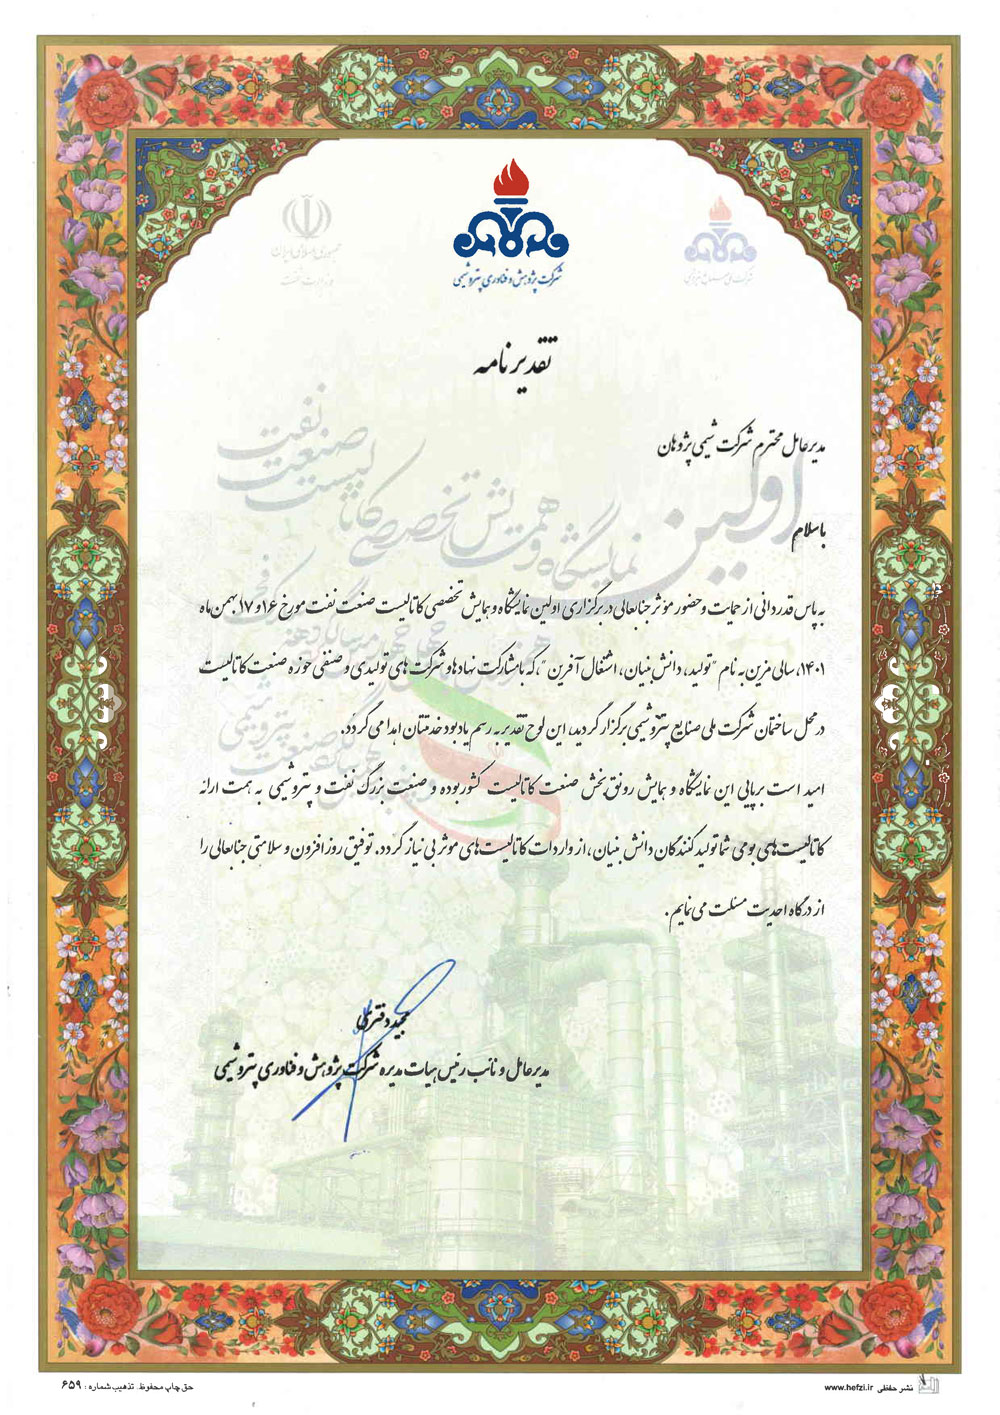 جمهوری اسلامی ایران
وزارت نفت
شرکت پژوهش و فناوری پتروشیمی
شرکت ملی صنایع پتروشیمی
تقدیرنامه
مدیرعامل محترم شرکت شیمی پژوهان
باسلام
اولین
نمایشگاه و همایش تخصصی کاتالیست صنعت نفت
به پاس قدردانی از حمایت و حضور مؤثر جنابعالی در برگزاری اولین نمایشگاه و همایش تخصصی کاتالیست صنعت نفت مورخ ۱۶ و ۱۷ بهمن ماه
۱۴۰۱، سالی مزین به نام "تولید، دانش بنیان، اشتغال آفرین"، که با مشارکت نهادها و شرکت های تولیدی و صنفی حوزه صنعت کاتالیست
در محل ساختمان شرکت ملی صنایع پتروشیمی برگزار گردید، این لوح تقدیر به رسم یادبود خدمتتان اهدا می گردد.
امید است برپایی این نمایشگاه و همایش رونق بخش صنعت کاتالیست کشور بوده و صنعت بزرگ نفت و پتروشیمی به همت ارائه
کاتالیست های بومی شما تولیدکنندگان دانش بنیان، از واردات کاتالیست های موثر بی نیاز گردد. توفیق روزافزون و سلامتی جنابعالی را
از درگاه احدیت مسئلت می نمایم.
مجید دفتری
مدیرعامل و نائب رئیس هیات مدیره شرکت پژوهش و فناوری پتروشیمی
حق چاپ محفوظ. تذهیب شماره : ۶۵۹
نشر حفظی www.hefzi.ir